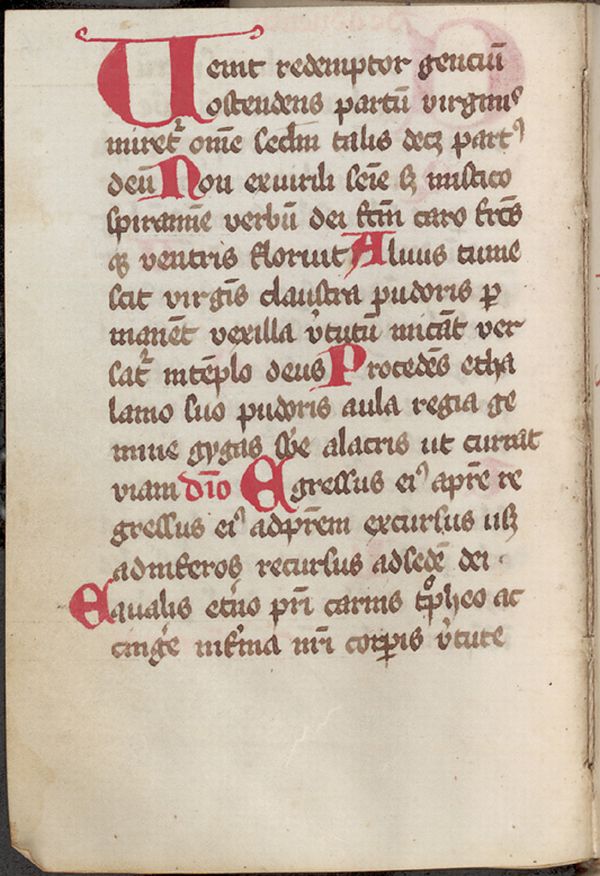 Ueiit redemptor genciū
ostendens partū virginis
miret᷑ om̄e seclm̄ talis decꝫ part᾿
deū Non exvirili sēie sꝫ mistico
spiramīe verbū dei fc̄m caro frc̄s
qꝫ ventris floruit Aluus tume
scit virgīs claustra pudoris ꝑ
manēt vexilla v̓tutū micāt ver
sat᷑ intēplo deus Procedēs etha
lamo suo pudoris aula regia ge
mine gygas sb̄e alacris ut currat
viam dīo Egressus ei᾿ apr̄e re
gressus ei᾿ adpr̄em excursus usꝫ
adinferos recursus adsedē dei ·
Equalis et̓no pr̄i carnis tͦpheo ac
cinge̓ infir̓ma nr̄i corꝑis v̓tute